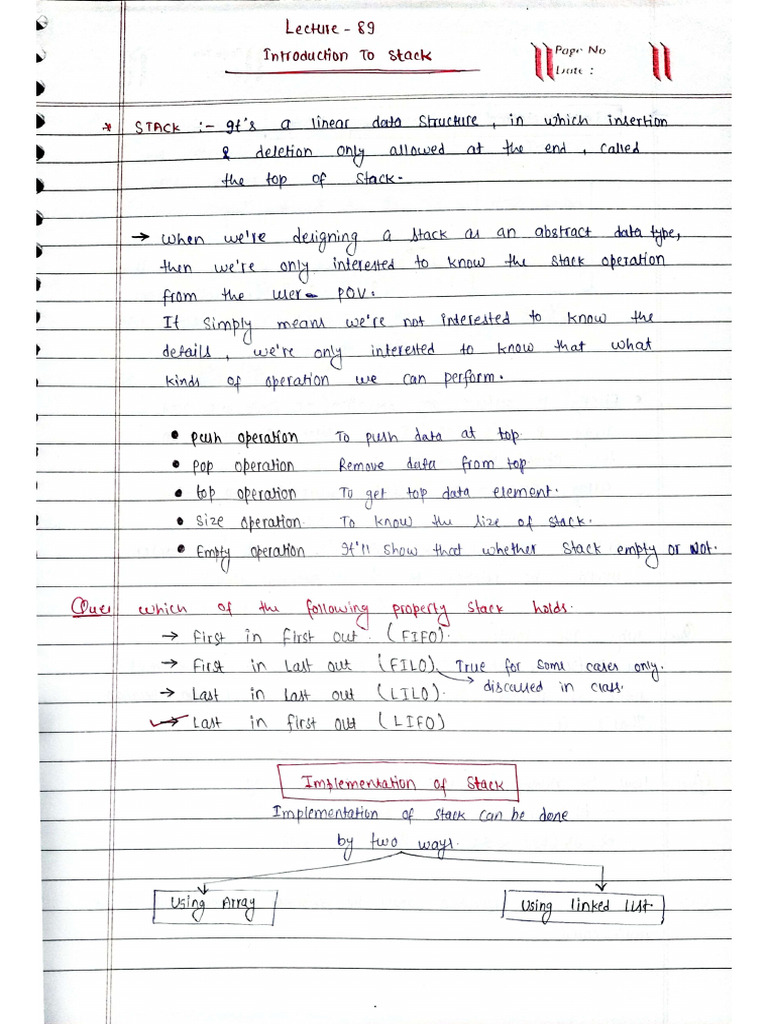 Lecture - 89
Introduction To Stack
Page No
Date :
* STACK :- It's a linear data structure, in which insertion
& deletion only allowed at the end, called
the top of Stack.
→ When we're designing a stack as an abstract data type,
then we're only interested to know the stack operation
from the user POV.
It simply means we're not interested to know the
details, we're only interested to know that what
kinds of operation we can perform.
• push operation To push data at top
• pop operation Remove data from top
• top operation To get top data element.
• Size operation To know the size of stack.
• Empty operation It'll show that whether Stack empty or Not.
Ques which of the following property stack holds.
→ First in First out. (FIFO).
→ First in Last out (FILO). True for Some cases only.
→ discussed in class.
→ Last in last out (LILO).
✓→ Last in first out (LIFO)
Implementation of Stack
Implementation of stack can be done
by two ways.
Using Array
Using linked list